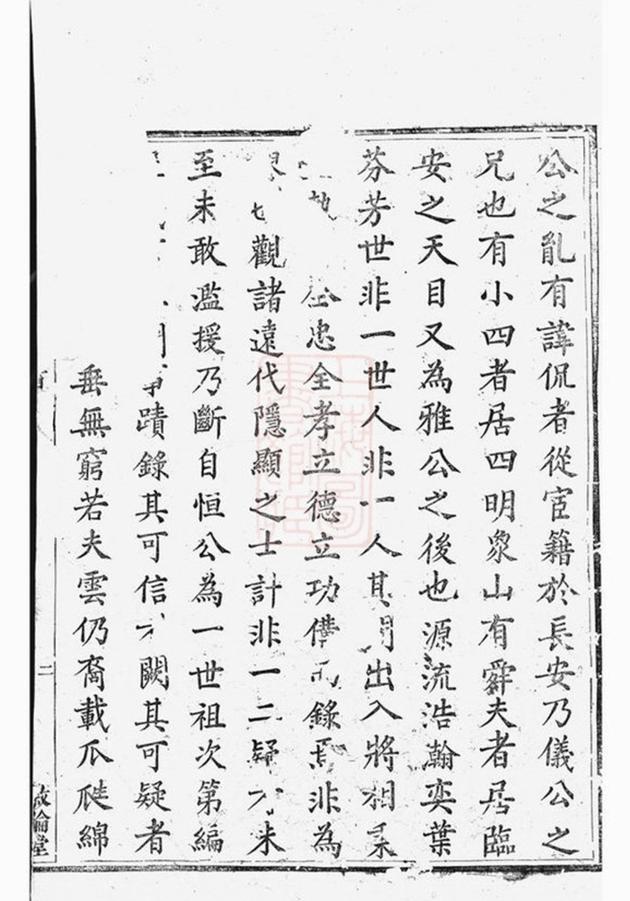 公之亂有諱侃者從宦籍於長安乃儀公之
兄也有小四者居四明象山有舜夫者居臨
安之天目又為雅公之後也源流浩瀚奕葉
芬芳世非一世人非一人其間出入將相
全忠全孝立德立功備錄焉非為
觀諸遠代隱顯之士計非一二疑未
至未敢濫援乃斷自恒公為一世祖次第編
事蹟錄其可信闕其可疑者
垂無窮若夫雲仍裔載瓜瓞綿
二
敦倫堂